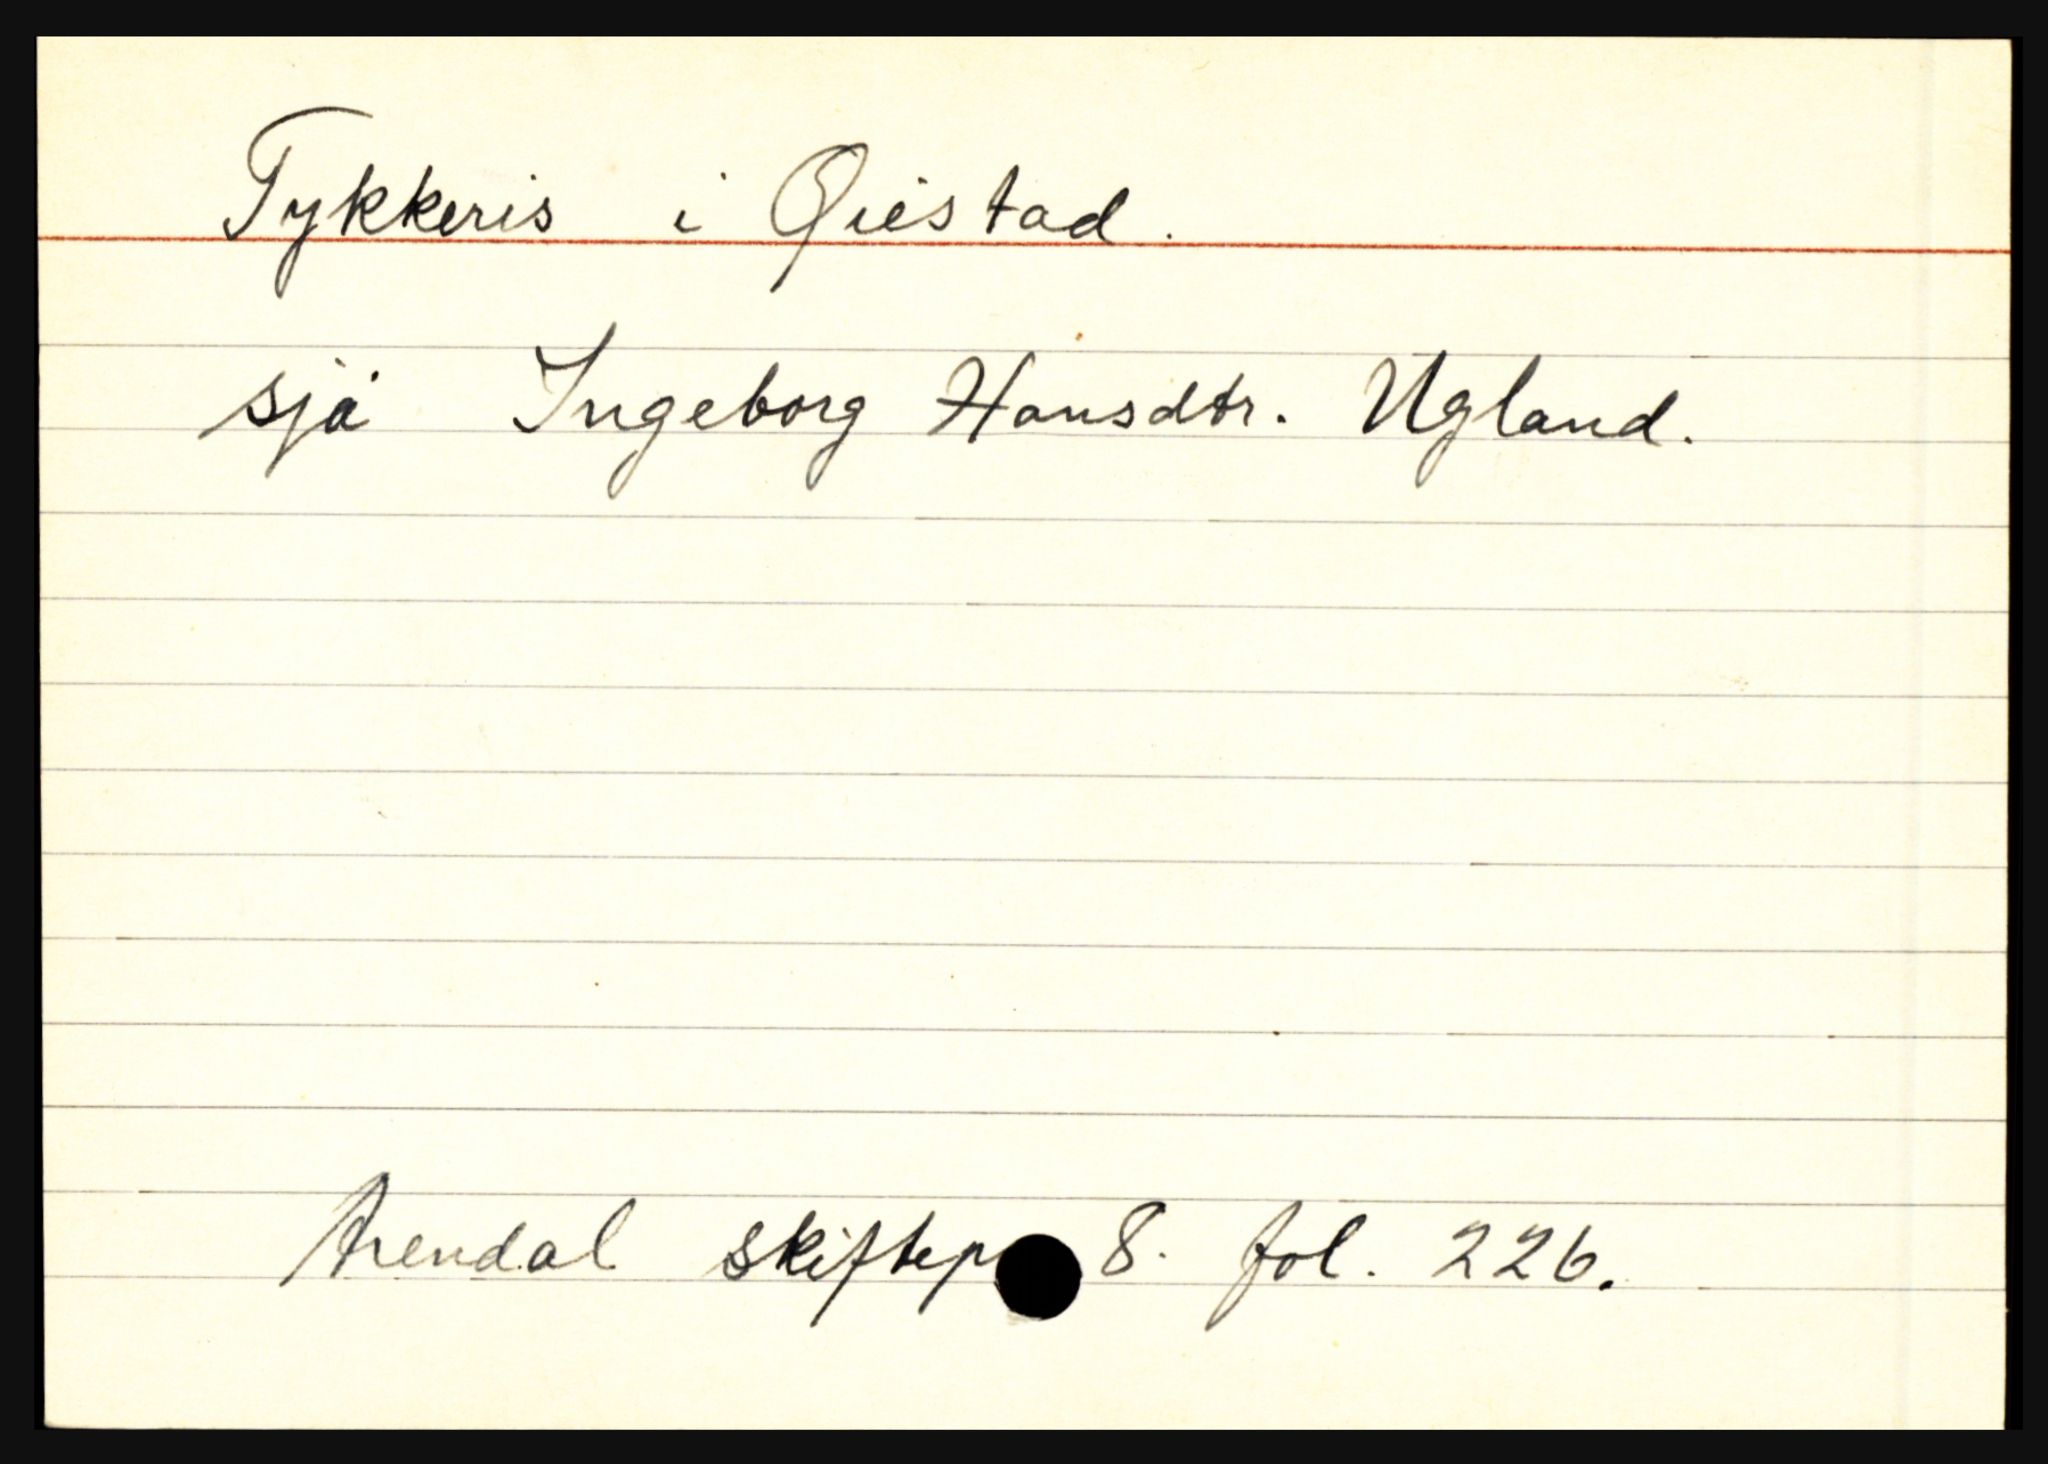 Tykkeris i Øiestad.
sjå Ingeborg Hansdtr. Ugland.
Arendal skiftepr 8. fol. 226.